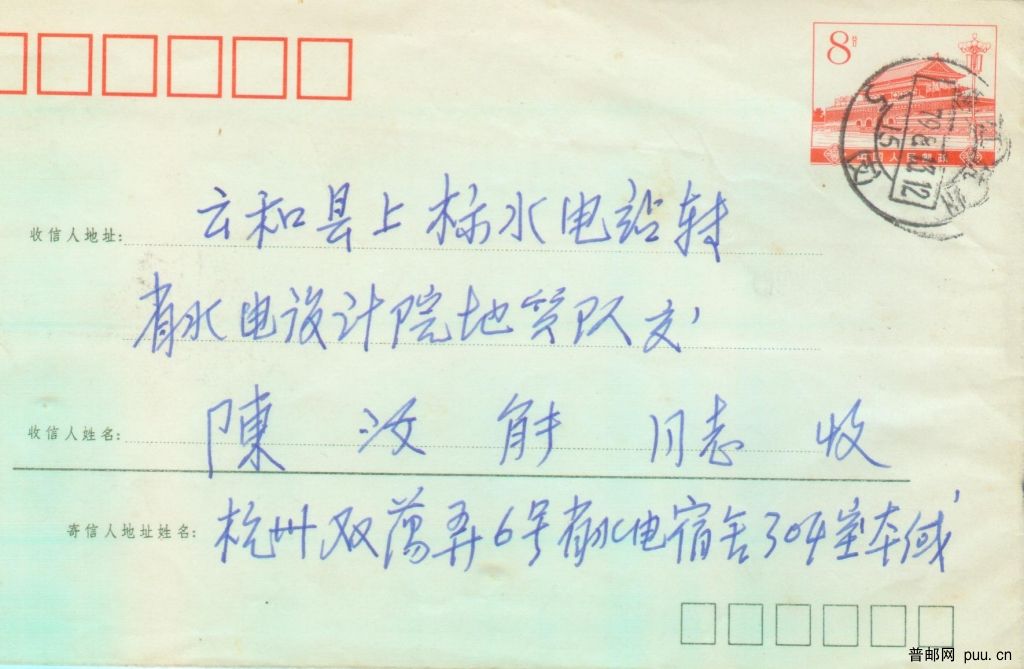 8分
中国人民邮政
79.8.13.12
15
收信人地址: 云和县上标水电站转
省水电设计院地质队交
收信人姓名: 陳汝 同志 收
寄信人地址姓名: 杭州双荡弄6号省水电宿舍304室
普邮网 puu.cn